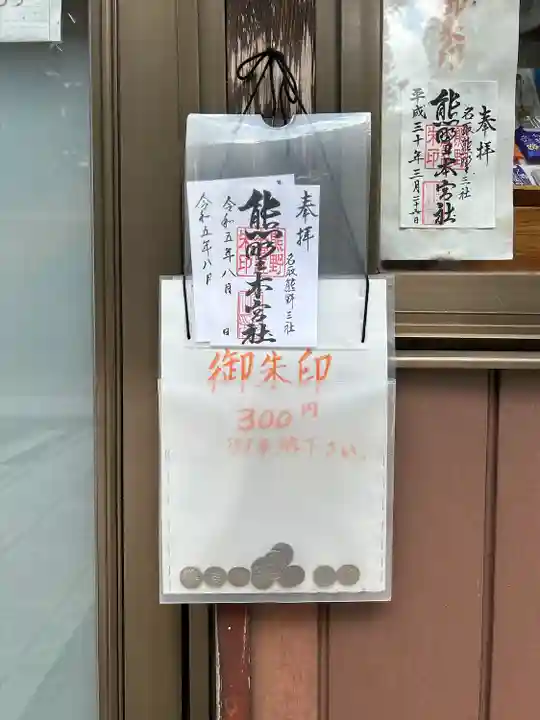 奉拝
名取熊野三社
熊野本宮社
熊野
朱印
令和五年八月 日
令和五年八月
御朱印
300円
奉拝
名取熊野三社
熊野本宮社
熊野
朱印
平成三十年三月二十九日